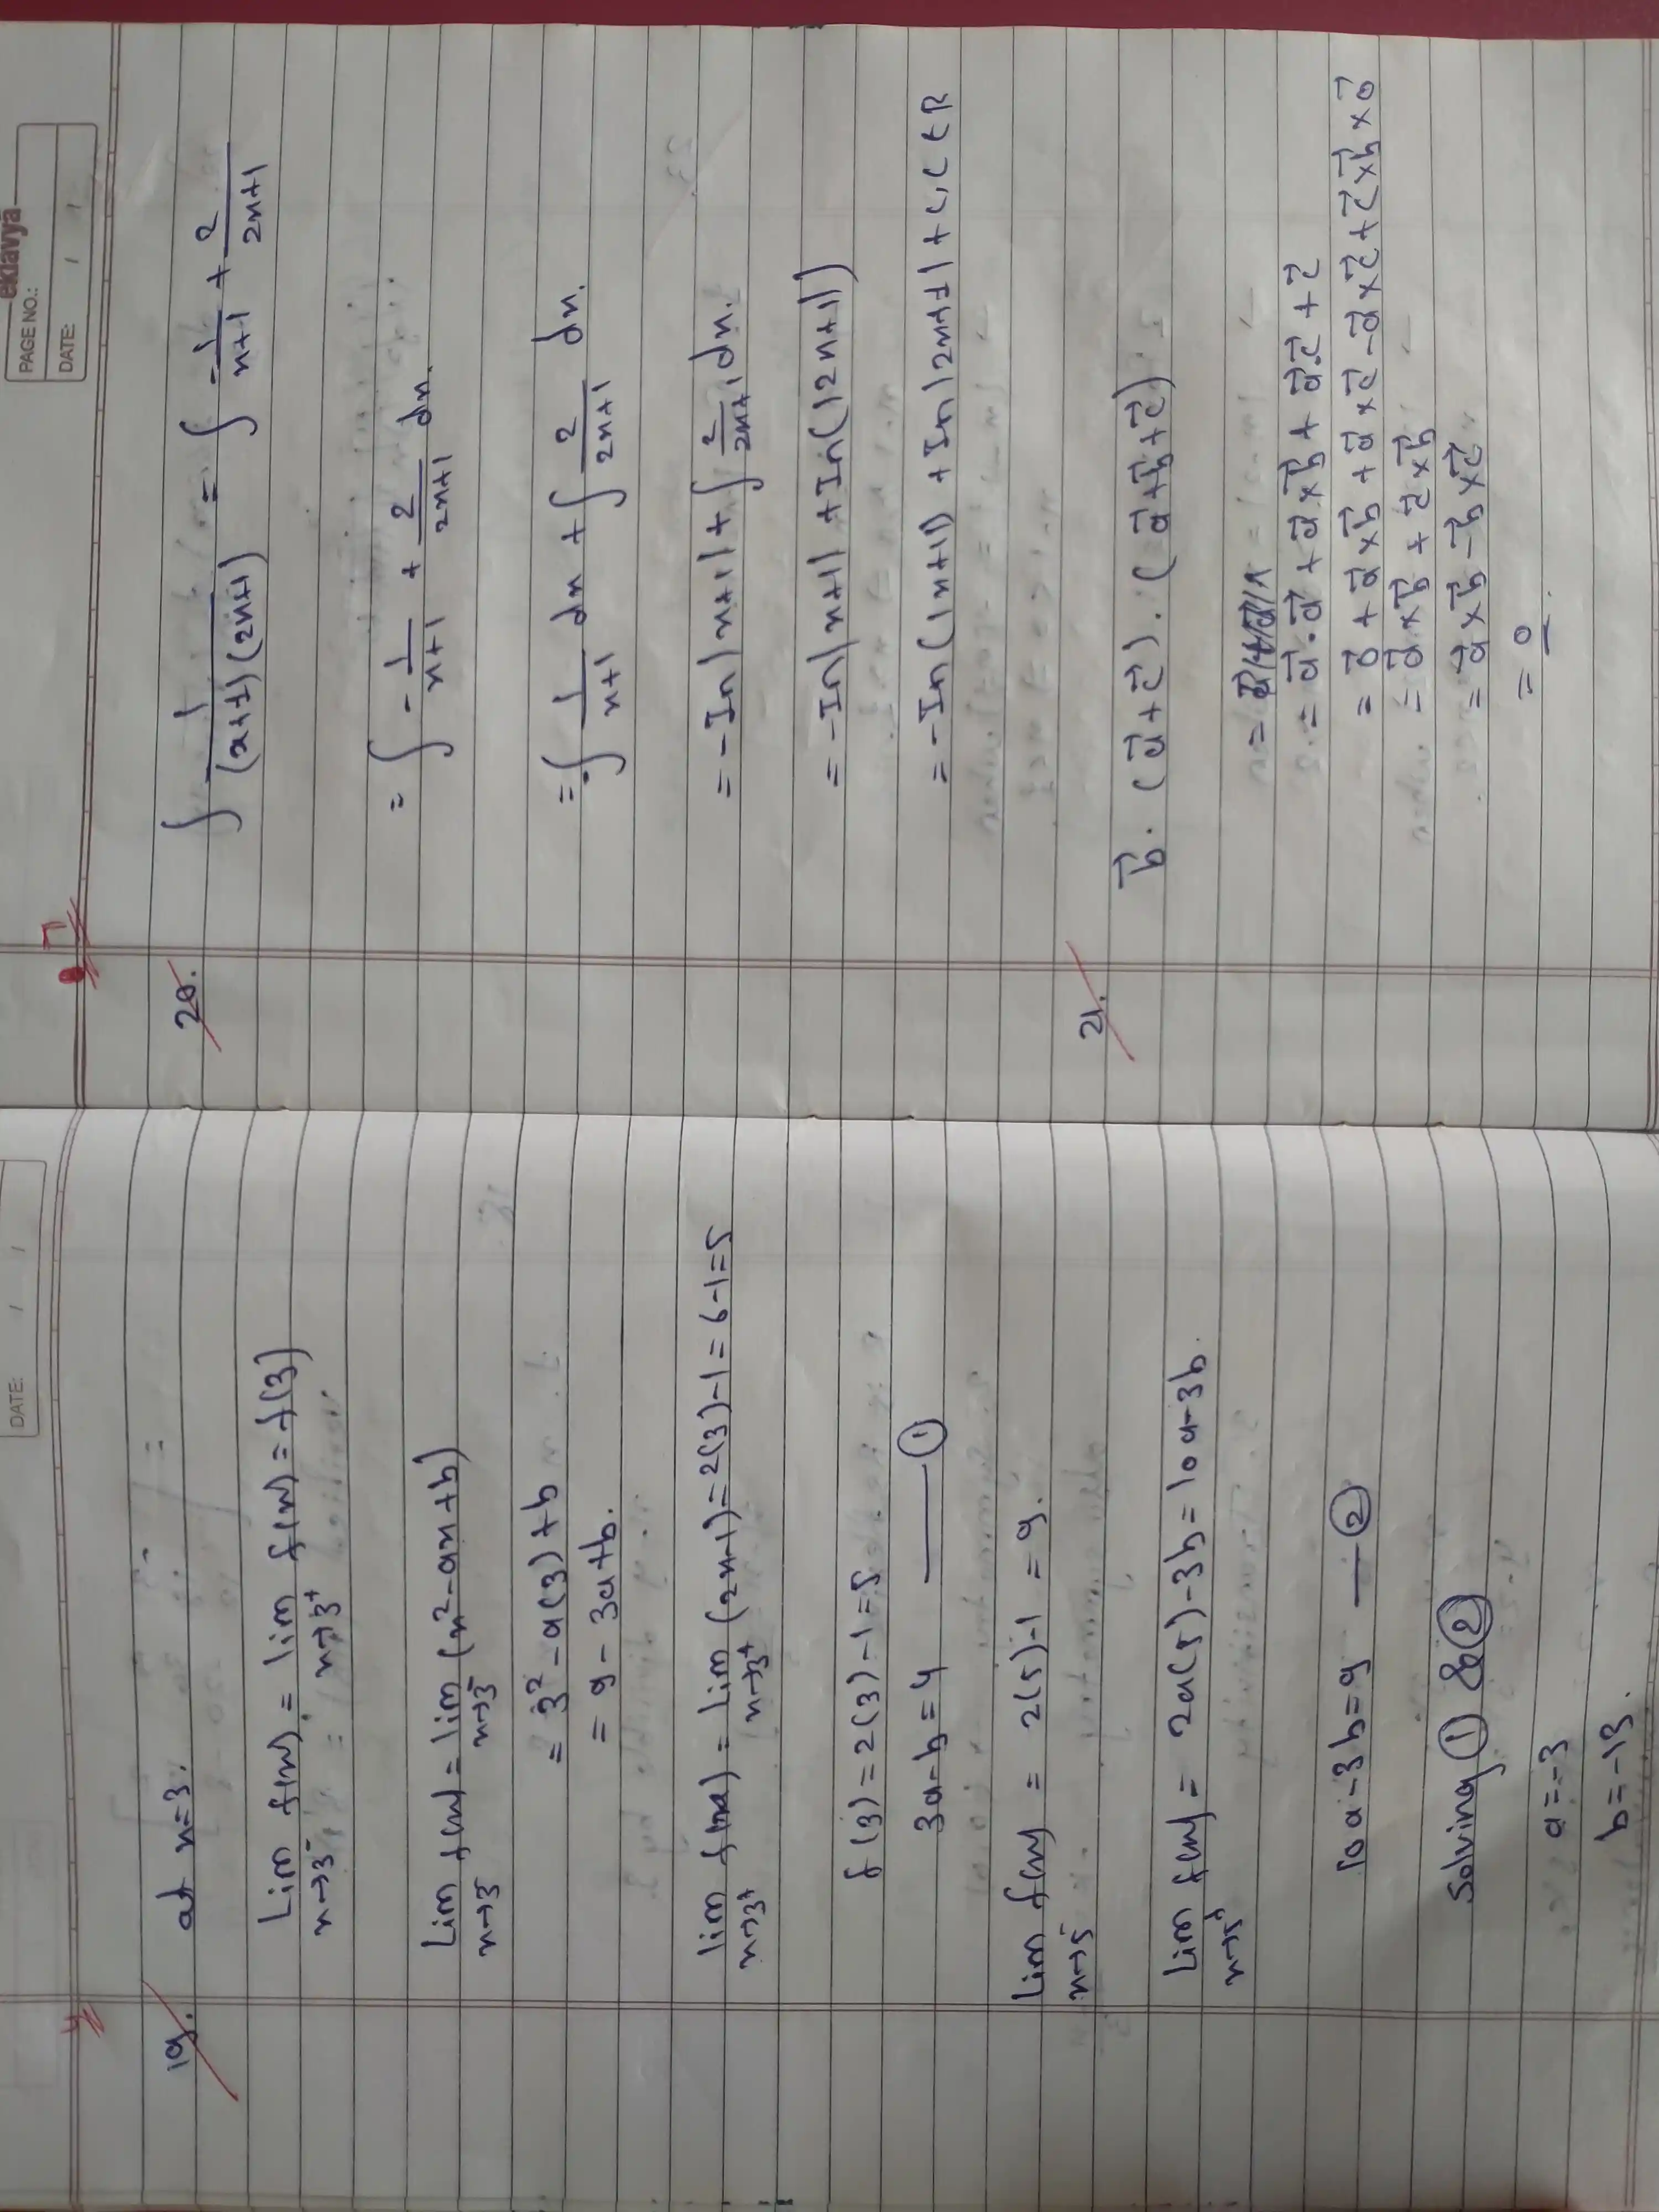 DATE: / /
4
19. at x=3.
Lim x→3⁻ f(x) = lim x→3⁺ f(x) = f(3)
Lim x→3⁻ f(x) = lim x→3⁻ (x²-ax+b)
= 3²-a(3)+b
= 9-3a+b.
lim x→3⁺ f(x) = lim x→3⁺ (2x-1) = 2(3)-1 = 6-1=5
f(3)=2(3)-1=5
3a-b=4 —— ①
Lim x→5⁻ f(x) = 2(5)-1 = 9.
Lim x→5⁺ f(x) = 2a(5)-3b=10a-3b.
10a-3b=9 — ②
Solving ① & ②
a=-3
b=-13.
eklavya
PAGE NO.:
DATE: / /
7
20. ∫ 1/(x+1)(2x+1) = ∫ -1/x+1 + 2/2x+1
= ∫ -1/x+1 + 2/2x+1 dx.
= -∫ 1/x+1 dx + ∫ 2/2x+1 dx.
= -In|x+1| + ∫ 2/2x+1 dx.
= -In|x+1| + In(|2x+1|)
= -In(|x+1|) + In|2x+1| + C, C ∈ R
21. b⃗.(a⃗+c⃗).(a⃗+b⃗+c⃗)
= a⃗.a⃗ + a⃗×b⃗ + a⃗.c⃗ + c⃗
= 0⃗ + a⃗×b⃗ + a⃗×c⃗ - a⃗×c⃗ + c⃗×b⃗×0⃗
= a⃗×b⃗ + c⃗×b⃗
= a⃗×b⃗-b⃗×c⃗
= 0.